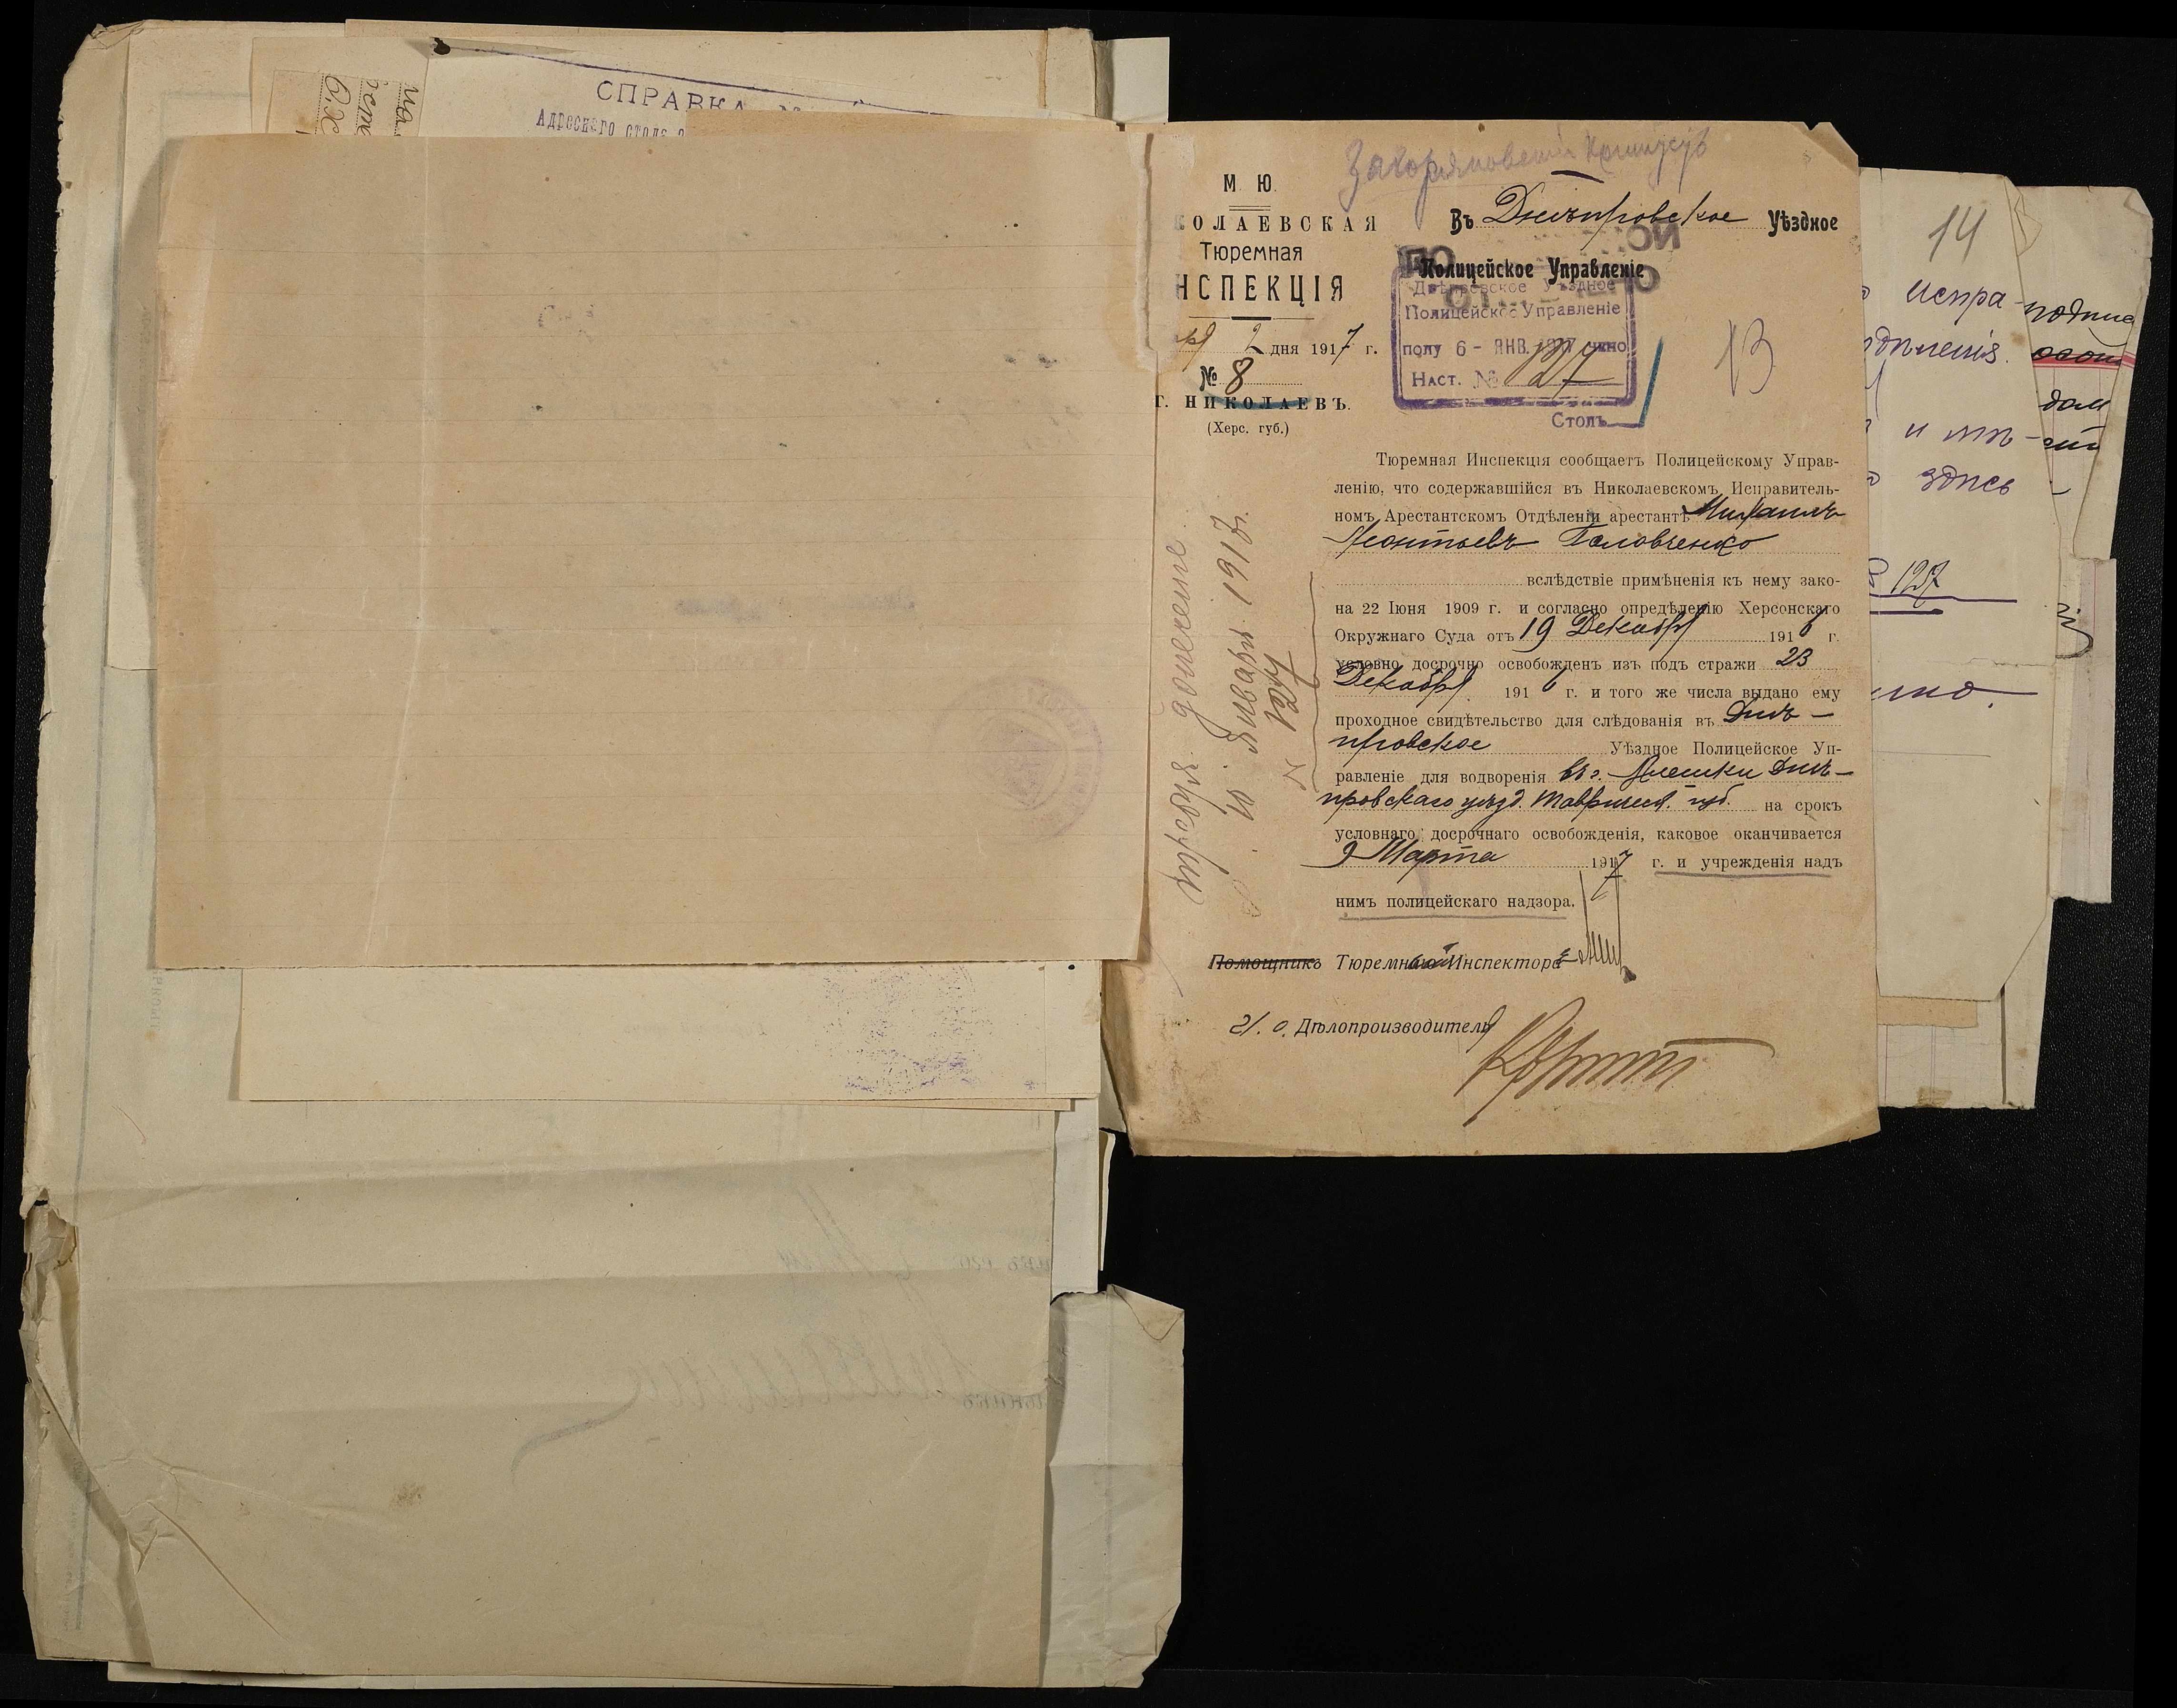 СПРАВКА
Адреснаго стола
М. Ю.
КОЛАЕВСКАЯ
Тюремная
НСПЕКЦІЯ
2 дня 1917 г.
№ 8
Г. НИКОЛАЕВЪ.
(Херс. губ.)
Въ Днѣпровское Уѣздное
Полицейское Управленіе
Днѣпровское Уѣздное
Полицейское Управленіе
полу 6 - ЯНВ. 1917 чено
Наст. № 127
Столъ
13
Тюремная Инспекція сообщаетъ Полицейскому Управ-
ленію, что содержавшійся въ Николаевскомъ Исправитель-
номъ Арестантскомъ Отдѣленіи арестантъ Михаилъ
Леонтьевъ Головченко
вслѣдствіе примѣненія къ нему зако-
на 22 Іюня 1909 г. и согласно опредѣленію Херсонскаго
Окружнаго Суда отъ 19 Декабря 1916 г.
условно досрочно освобожденъ изъ подъ стражи 23
Декабря 1916 г. и того же числа выдано ему
проходное свидѣтельство для слѣдованія въ Днѣ-
провское Уѣздное Полицейское Уп-
равленіе для водворенія въ г. Алешки Днѣ-
провскаго уѣзд. Таврическ. губ. на срокъ
условнаго досрочнаго освобожденія, каковое оканчивается
9 Марта 1917 г. и учрежденія надъ
нимъ полицейскаго надзора.
Помощникъ Тюремный Инспекторъ
И. о. Дѣлопроизводителя
донесеніе
10 Января 1917 г.
№ 127
14
испра-
и мѣ-
здѣсь
127